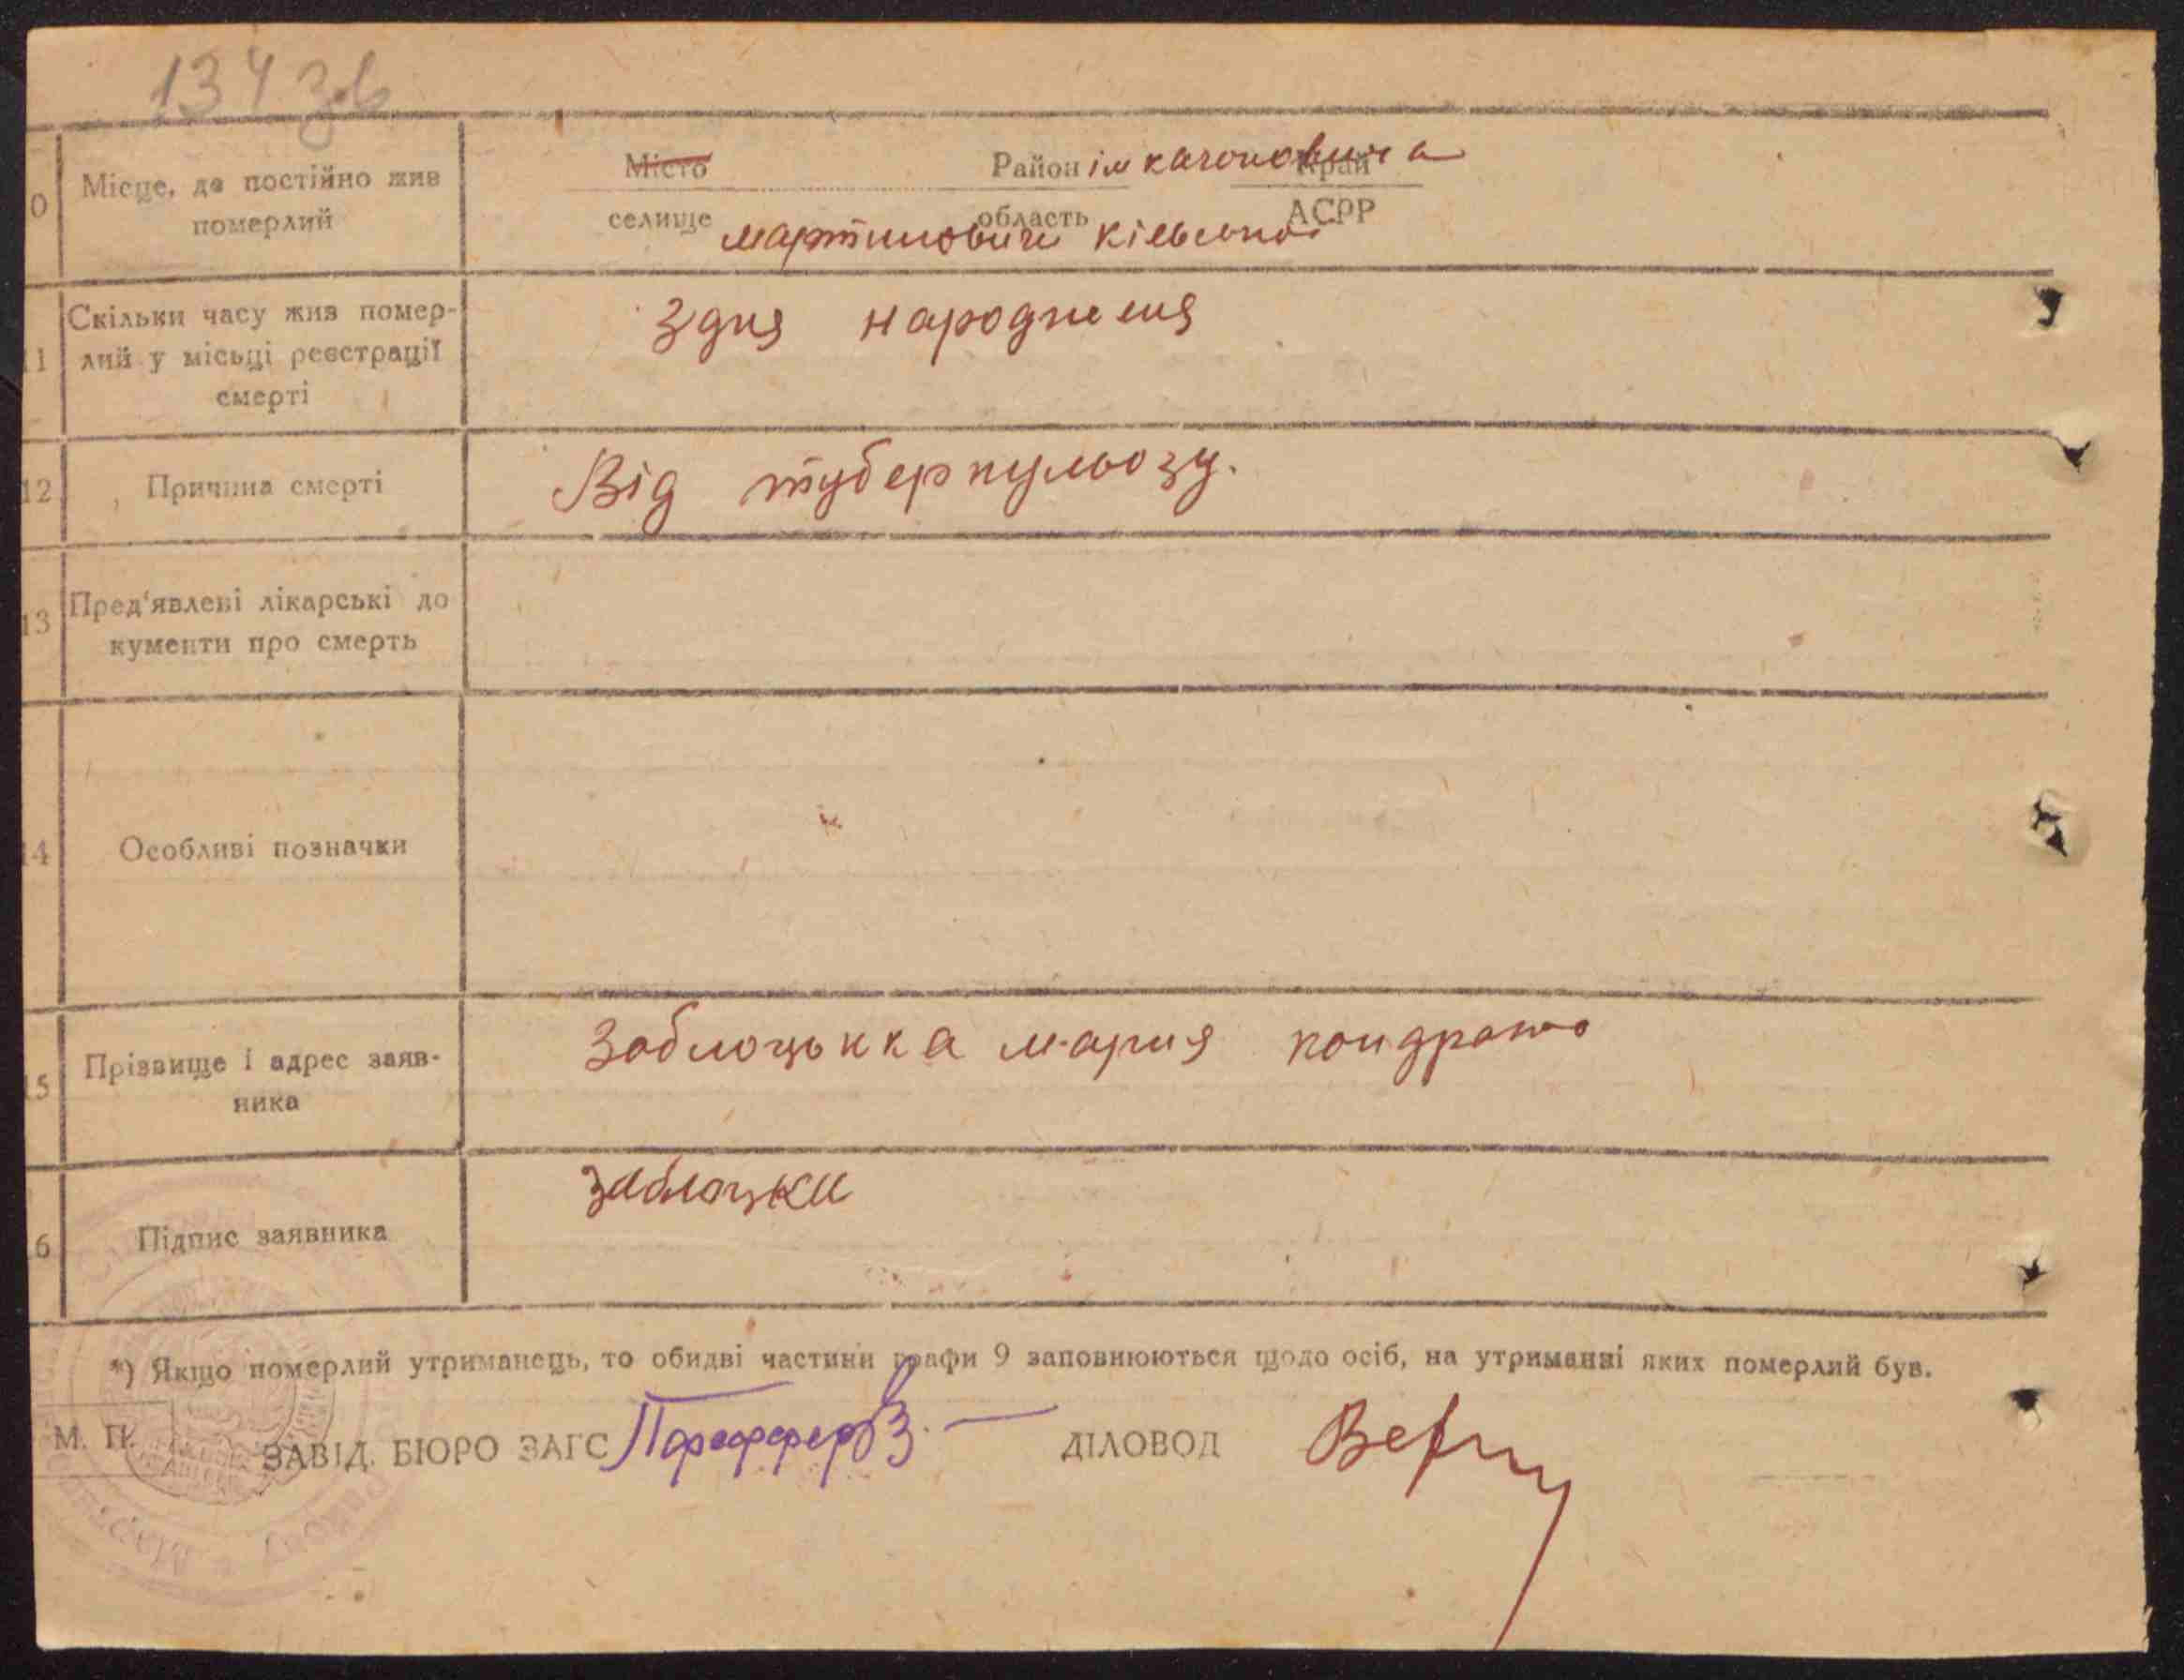 134 зв
10 Місце, де постійно жив померлий
Місто Район ім кагоновича Край
селище мартиновичі область київської АСРР
11 Скільки часу жив помер-
лий у місьці реєстрації
смерті
Здня народженя
12 Причина смерті
Від туберкульозу.
13 Пред'явлені лікарські до
кументи про смерть
14 Особливі позначки
15 Прізвище і адрес заяв-
ника
Заблоцькка мария кондрат
16 Підпис заявника
заблоцка
*) Якщо померлий утриманець, то обидві частини графи 9 заповнюються щодо осіб, на утриманні яких померлий був.
М. П. ЗАВІД. БЮРО ЗАГС ДІЛОВОД